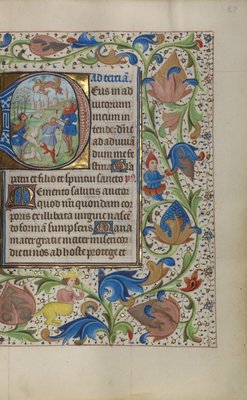 ad terciā.
Deus in ad
iutorium
meum in
tende: dñe
ad adiuuā
dum me fe
stina Glia
patri et filio et spiritui sancto
Memento salutis auctor
quod nr̄i quondam cor
poris ex illibata uirgine nascē
do formā sumpseris Maria
mater gratie mater misericor
die tu nos ab hoste protege et